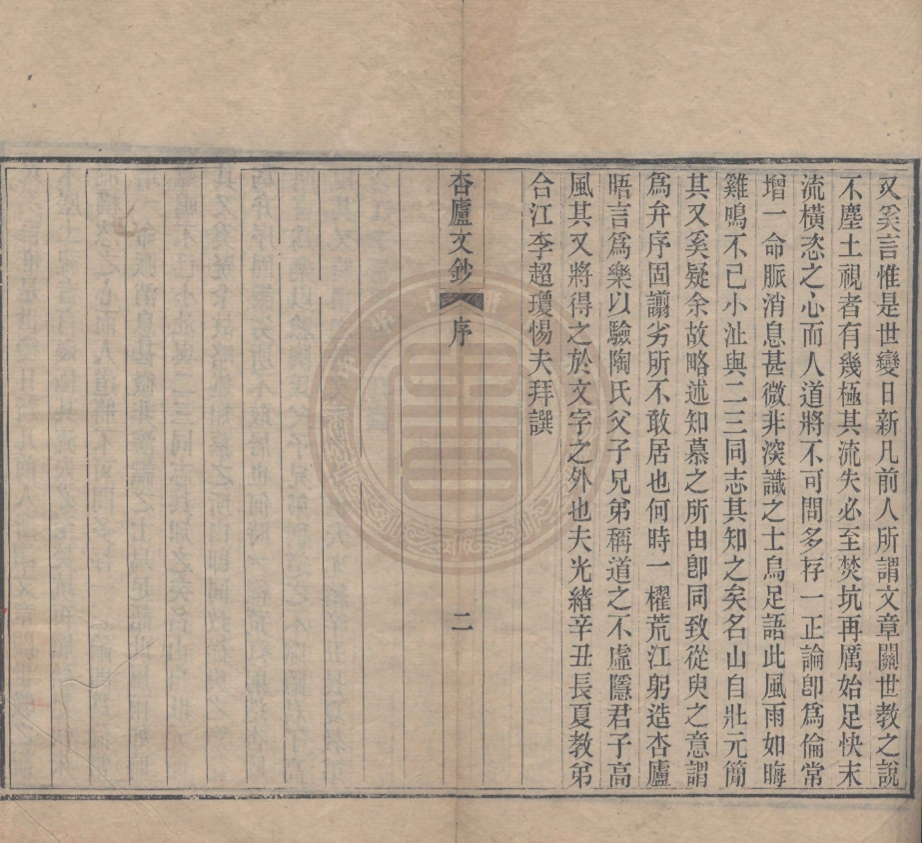 又奚言惟是世變日新凡前人所謂文章關世教之說
不塵土視者有幾極其流失必至焚坑再厲始足快末
流橫恣之心而人道將不可問多存一正論卽爲倫常
增一命脈消息甚微非深識之士烏足語此風雨如晦
雞鳴不已小沚與二三同志其知之矣名山自壯元簡
其又奚疑余故略述知慕之所由卽同致從臾之意謂
爲弁序固譾劣所不敢居也何時一櫂荒江躬造杏廬
晤言爲樂以驗陶氏父子兄弟稱道之不虛隱君子高
風其又將得之於文字之外也夫光緒辛丑長夏教弟
合江李超瓊惕夫拜譔
杏廬文鈔 序 二